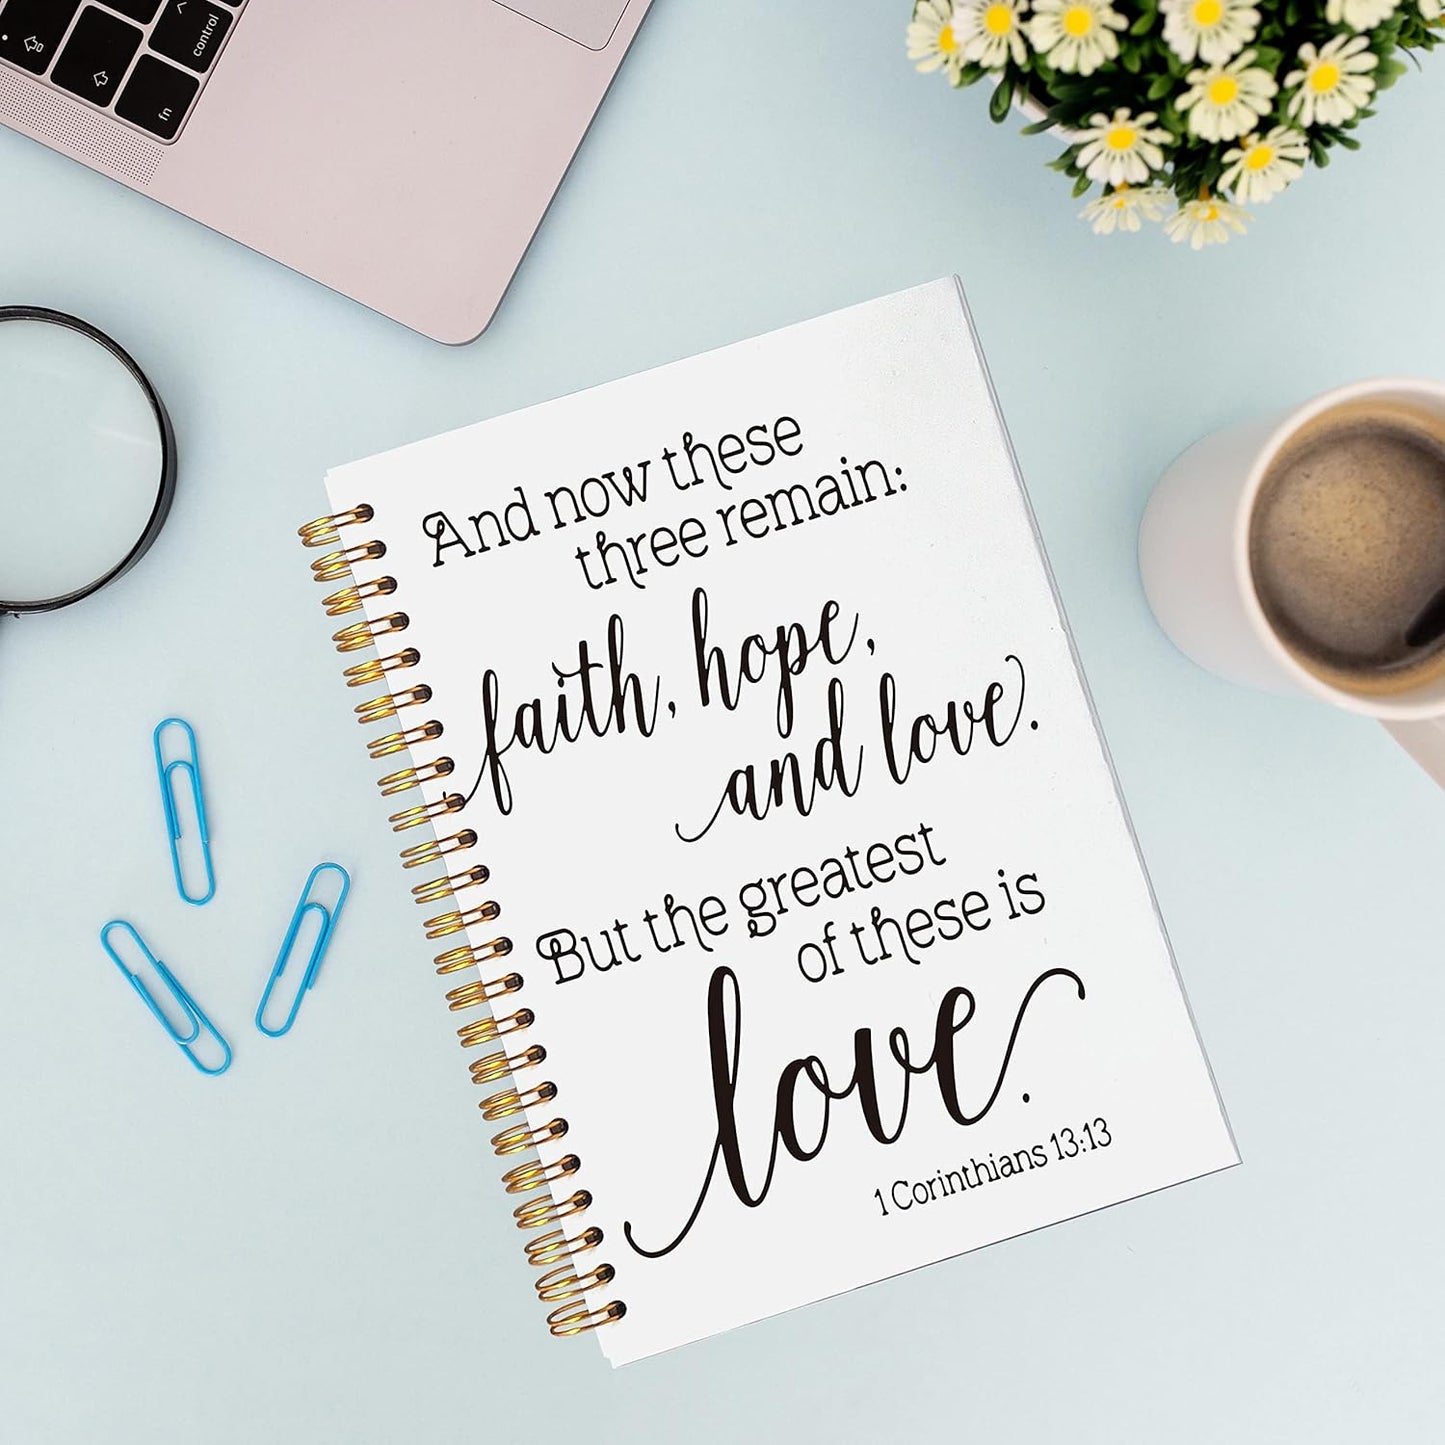 control
fn
And now these
three remain:
faith, hope,
and love.
But the greatest
of these is
love.
1 Corinthians 13:13